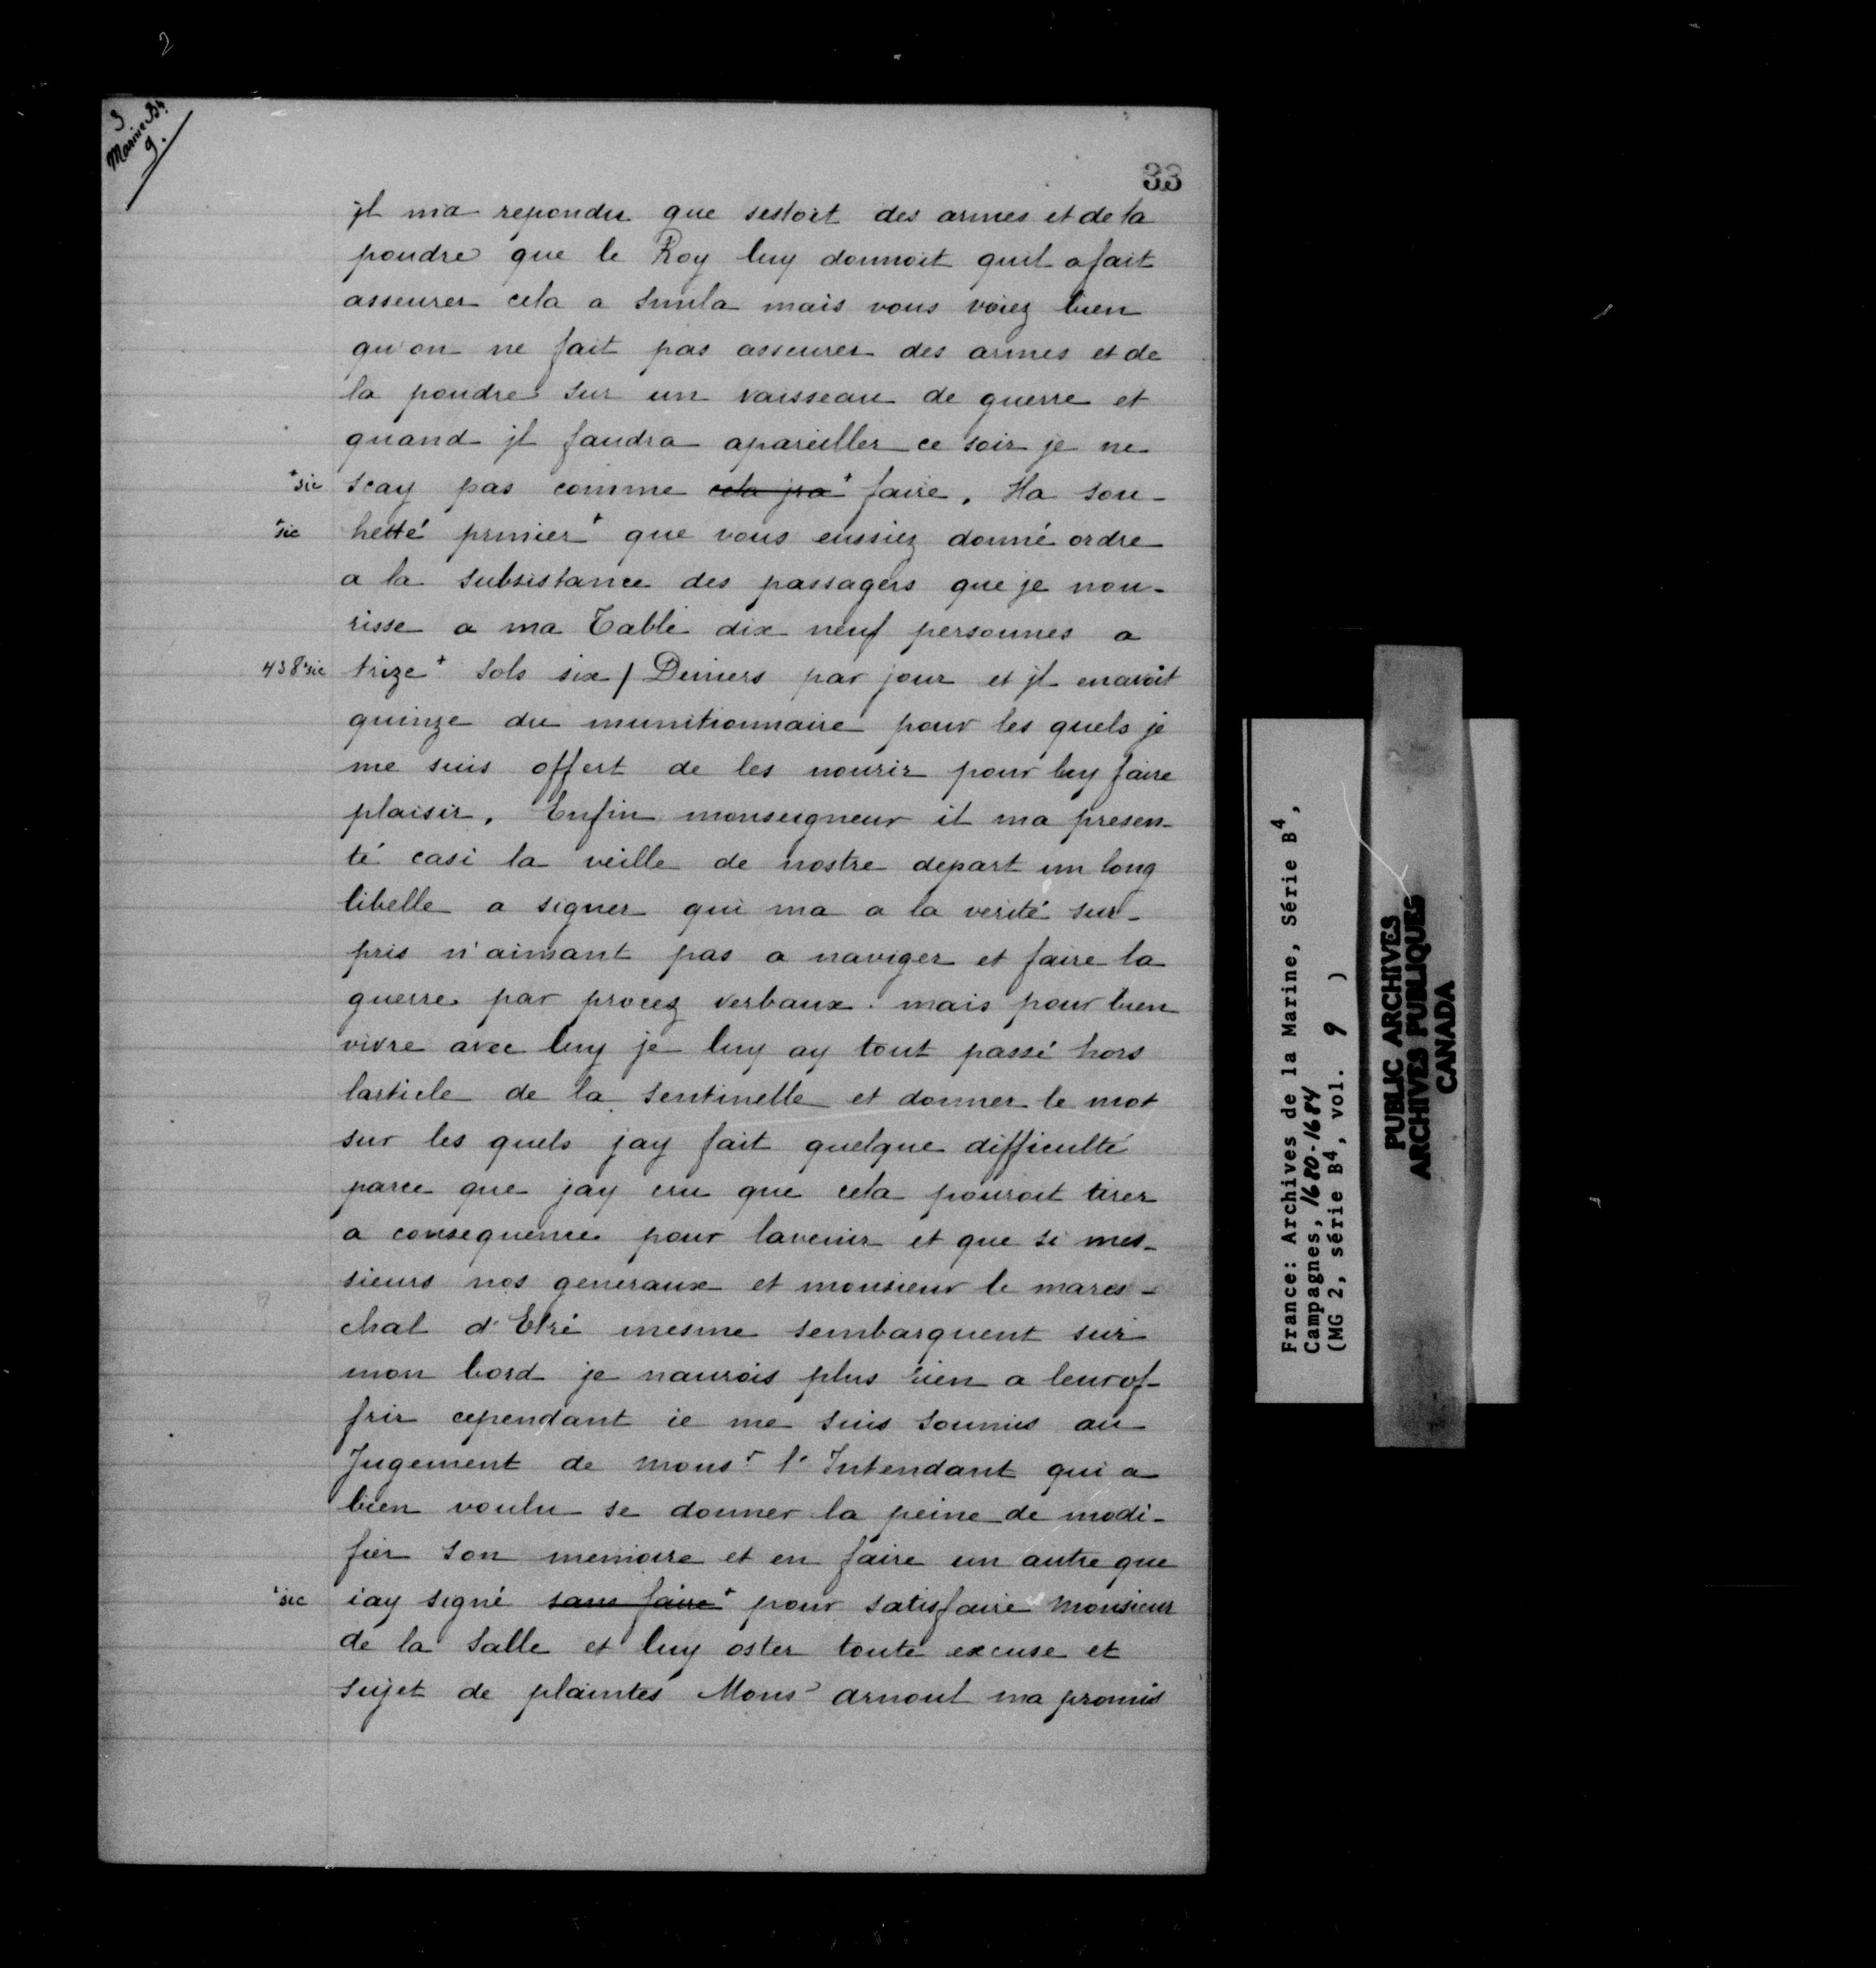 3
Marine B4.
9.
33
jl ma repondu que sestoit des armes et de la
poudre que le Roy luy donnoit quil a fait
asseurer cela a
mais vous voiez bien
qu'on ne fait pas asseurer des armes et de
la poudre sur un vaisseau de guerre et
quand jl faudra apareiller ce soir je ne
+sic scay pas comme cela jra+ faire. Ha sou-
+sic hetté prmier+ que vous eussiez donné ordre
a la subsistance des passagers que je nou-
risse a ma Table dix neuf personnes a
438 +sic trize+ sols six / Deniers par jour et jl en avoit
quinze du munitionnaire pour les quels je
me suis offert de les nourir pour luy faire
plaisir. Enfin monseigneur il ma presen-
té casi la veille de nostre depart un long
libelle a signer qui ma a la verité sur-
pris n'aimant pas a naviger et faire la
guerre par procez verbaux. mais pour bien
vivre avec luy je luy ay tout passé hors
larticle de la sentinelle et donner le mot
sur les quels jay fait quelque difficulté
parce que jay cru que cela pouroit tirer
a consequence pour lavenir et que si mes-
sieurs nos generaux et monsieur le mares-
chal d'Etré mesme sembarquent sur
mon bord je naurois plus rien a leur of-
frir cependant ie me suis soumis au
Jugement de monsr l'Intendant qui a
bien voulu se donner la peine de modi-
fier son memoire et en faire un autre que
+sic iay signé sans faire+ pour satisfaire monsieur
de la Salle et luy oster toute excuse et
sujet de plaintes Monsr arnoul ma promis
France: Archives de la Marine, Série B4,
Campagnes, 1680-1684
(MG 2, série B4, vol. 9 )
PUBLIC ARCHIVES
ARCHIVES PUBLIQUES
CANADA